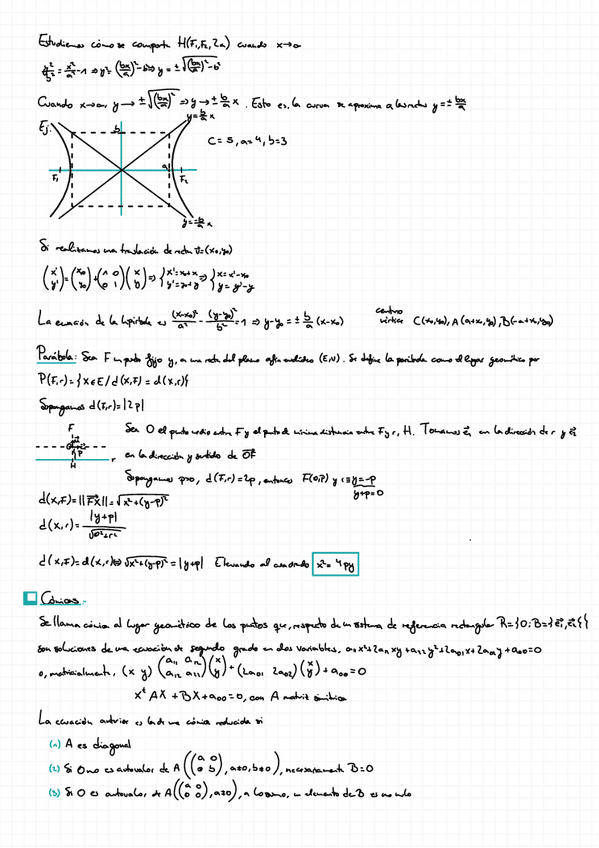 Estudiemos cómo se comporta H(F₁,F₂,2a) cuando x→∞
y²/b² = x²/a² - 1 ⇒ y² = (bx/a)² - b² ⇒ y = ±√((bx/a)² - b²)
Cuando x→∞, y → ±√((bx/a)²) ⇒ y → ± b/a x. Esto es, la curva se aproxima a las rectas y = ± bx/a
Ej:
y = b/a x
b
C = 5, a = 4, b = 3
a
F₁
F₂
y = -b/a x
Si realizamos una traslación de vector v = (x₀,y₀)
(x' y') = (x₀ y₀) + (1 0 0 1)(x y) ⇒ { x' = x₀+x y' = y₀+y ⇒ { x = x'-x₀ y = y'-y₀
La ecuación de la hipérbola es (x-x₀)²/a² - (y-y₀)²/b² = 1 ⇒ y-y₀ = ± b/a (x-x₀) centro vértice C(x₀,y₀), A(a+x₀,y₀), B(-a+x₀,y₀)
Parábola: Sea F un punto fijo y, a una recta del plano afín euclídeo (E,V). Se define la parábola como el lugar geométrico por
P(F,r) = {x∈E / d(x,F) = d(x,r)}
Supongamos d(F,r) = |2p|
F
Sea O el punto medio entre F y el punto de mínima distancia entre F y r, H. Tomamos e₁ en la dirección de r y e₂
O
P
r
H
en la dirección y sentido de OF
Supongamos p>0, d(F,r) = 2p, entonces F(0,p) y r ≡ y = -p
y+p=0
d(x,F) = ||FX|| = √(x²+(y-p)²)
d(x,r) = |y+p| / √(0²+1²)
d(x,F) = d(x,r) ⇔ √(x²+(y-p)²) = |y+p| Elevando al cuadrado x² = 4py
Cónicas:
Se llama cónica al lugar geométrico de los puntos que, respecto de un sistema de referencia rectangular R={0; B={e₁,e₂}}
son soluciones de una ecuación de segundo grado en dos variables, a₁₁x²+2a₁₂xy+a₂₂y²+2a₀₁x+2a₀₂y+a₀₀=0
o, matricialmente, (x y)(a₁₁ a₁₂ a₁₂ a₂₂)(x y) + (2a₀₁ 2a₀₂)(x y) + a₀₀ = 0
xᵗAX + BX + a₀₀ = 0, con A matriz simétrica
La ecuación anterior es la de una cónica reducida si
(1) A es diagonal
(2) Si 0 no es autovalor de A ((a 0 0 b), a≠0, b≠0), necesariamente B=0
(3) Si 0 es autovalor de A ((a 0 0 0), a≠0), a lo sumo, un elemento de B es no nulo